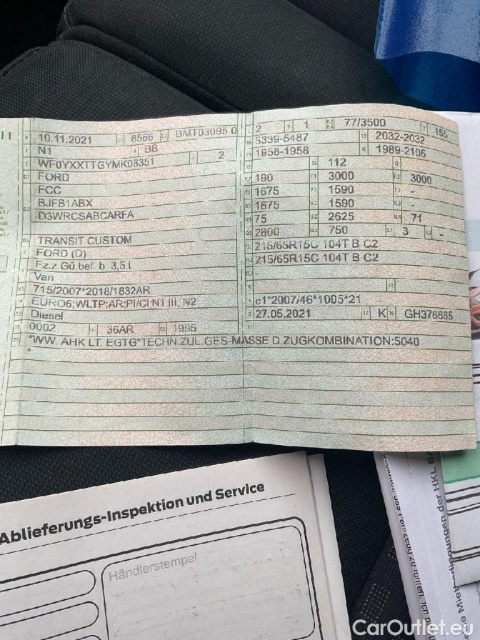 10.11.2021 8566 BMT03095 0
N1 BB
WF0YXXTTGYMK06351 2
FORD
FCC
BJFB1ABX
D3WRCSABCARFA
TRANSIT CUSTOM
FORD (D)
Fz.z.Gü.bef. b. 3,5 t
Van
715/2007*2018/1832AR
EURO6;WLTP;AR;PI/CI:N1 III, N2
Diesel
0002 36AR 1995
2 1 77/3500 155
5339-5487 2032-2032
1958-1958 1989-2106
112
190 3000 3000
1675 1590 -
1675 1590 -
75 2625 71
2800 750 3 -
215/65R15C 104T B C2
215/65R15C 104T B C2
e1*2007/46*1005*21
27.05.2021 K GH376665
*WW. AHK LT. EGTG*TECHN.ZUL.GES-MASSE D.ZUGKOMBINATION:5040
*
Ablieferungs-Inspektion und Service
Händlerstempel
CarOutlet.eu